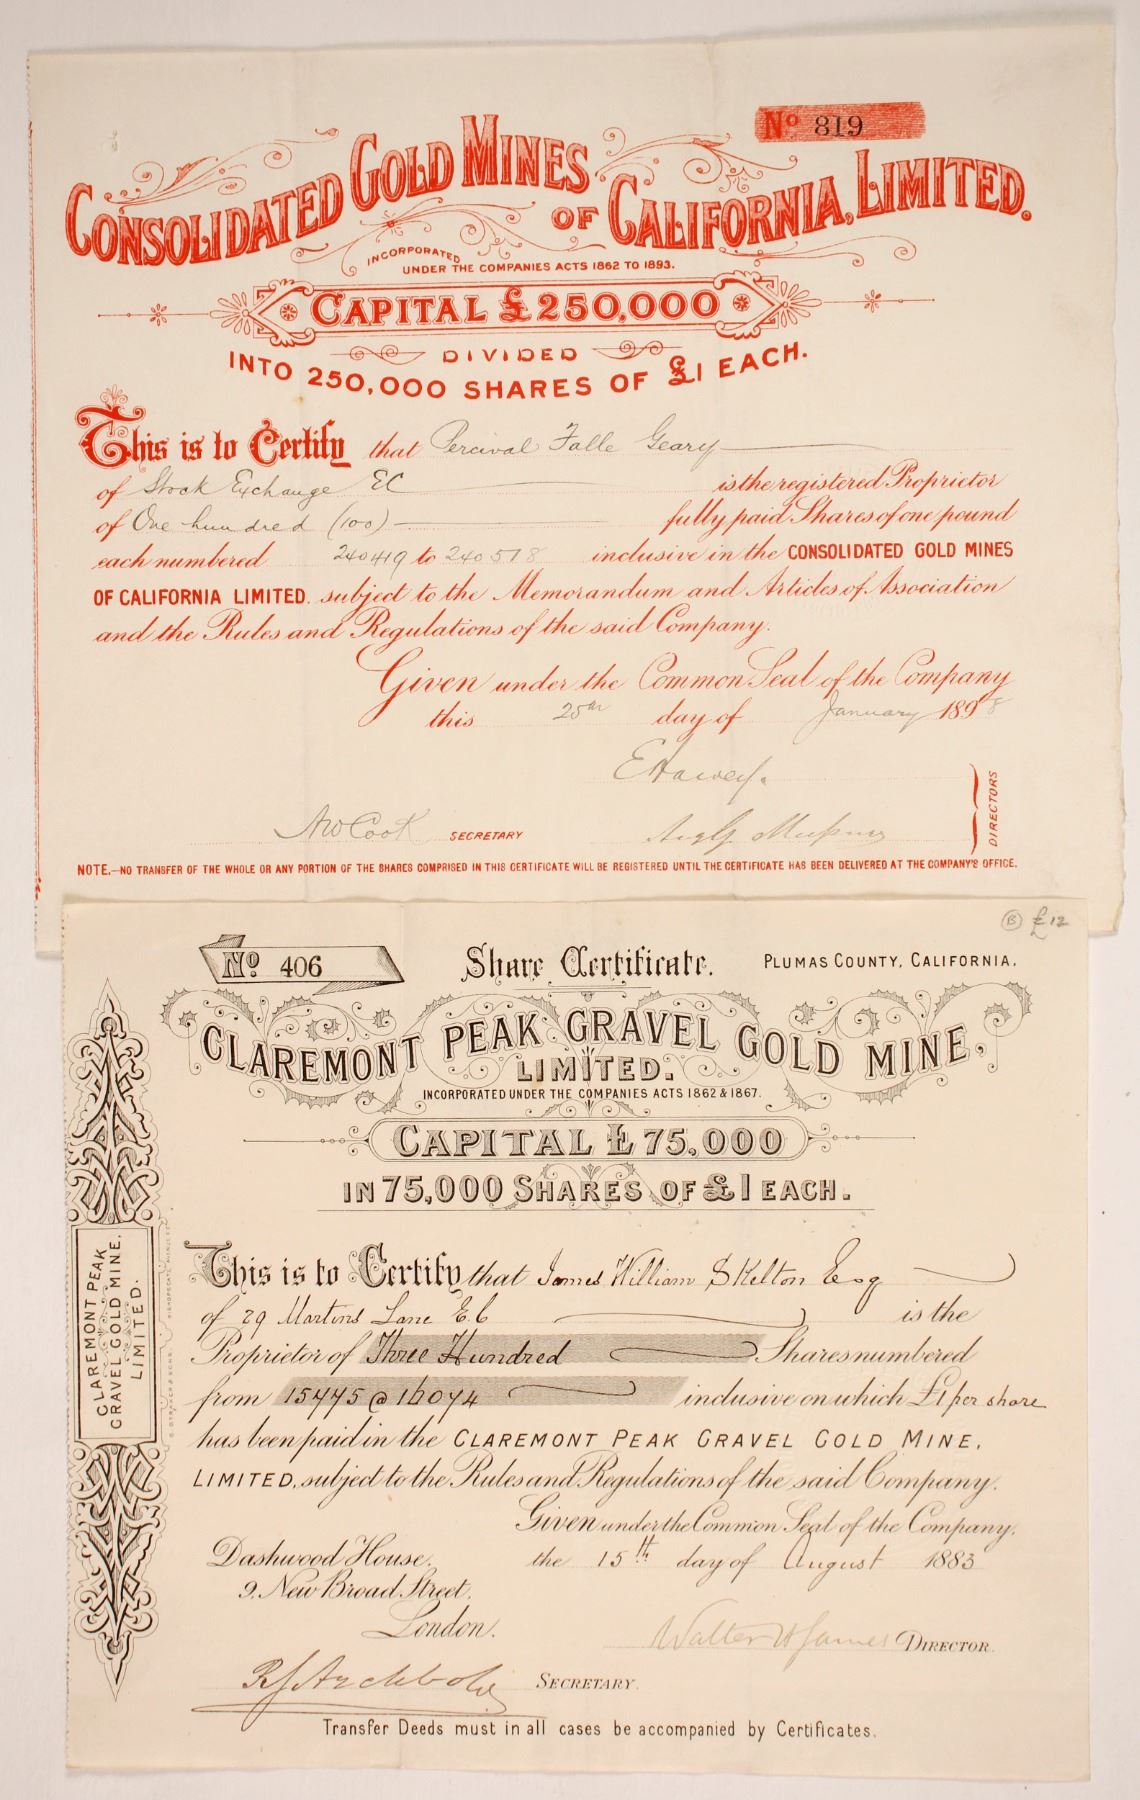 No 819
CONSOLIDATED GOLD MINES OF CALIFORNIA, LIMITED.
INCORPORATED
UNDER THE COMPANIES ACTS 1862 TO 1893.
CAPITAL £250,000
DIVIDED
INTO 250,000 SHARES OF £1 EACH.
This is to Certify that Percival Falle Geary
of Stock Exchange EC is the registered Proprietor
of One hundred (100) fully paid Shares of one pound
each numbered 240419 to 240518 inclusive in the CONSOLIDATED GOLD MINES
OF CALIFORNIA LIMITED. subject to the Memorandum and Articles of Association
and the Rules and Regulations of the said Company.
Given under the Common Seal of the Company
this 25th day of January 1898
DIRECTORS
AW Cook SECRETARY
NOTE.—NO TRANSFER OF THE WHOLE OR ANY PORTION OF THE SHARES COMPRISED IN THIS CERTIFICATE WILL BE REGISTERED UNTIL THE CERTIFICATE HAS BEEN DELIVERED AT THE COMPANY'S OFFICE.
B £12
No 406 Share Certificate. PLUMAS COUNTY, CALIFORNIA.
CLAREMONT PEAK GRAVEL GOLD MINE,
LIMITED.
INCORPORATED UNDER THE COMPANIES ACTS 1862 & 1867.
CAPITAL £75,000
IN 75,000 SHARES OF £1 EACH.
CLAREMONT PEAK
GRAVEL GOLD MINE,
LIMITED.
This is to Certify that James William Skelton Esq
of 29 Martins Lane E.C is the
Proprietor of Three Hundred Shares numbered
from 15775 @ 16074 inclusive on which £1 per share
has been paid in the CLAREMONT PEAK GRAVEL GOLD MINE,
LIMITED, subject to the Rules and Regulations of the said Company.
Given under the Common Seal of the Company.
Dashwood House, the 15th day of August 1883
9. New Broad Street,
London.
Walter H James DIRECTOR.
R J Archbold SECRETARY.
Transfer Deeds must in all cases be accompanied by Certificates.